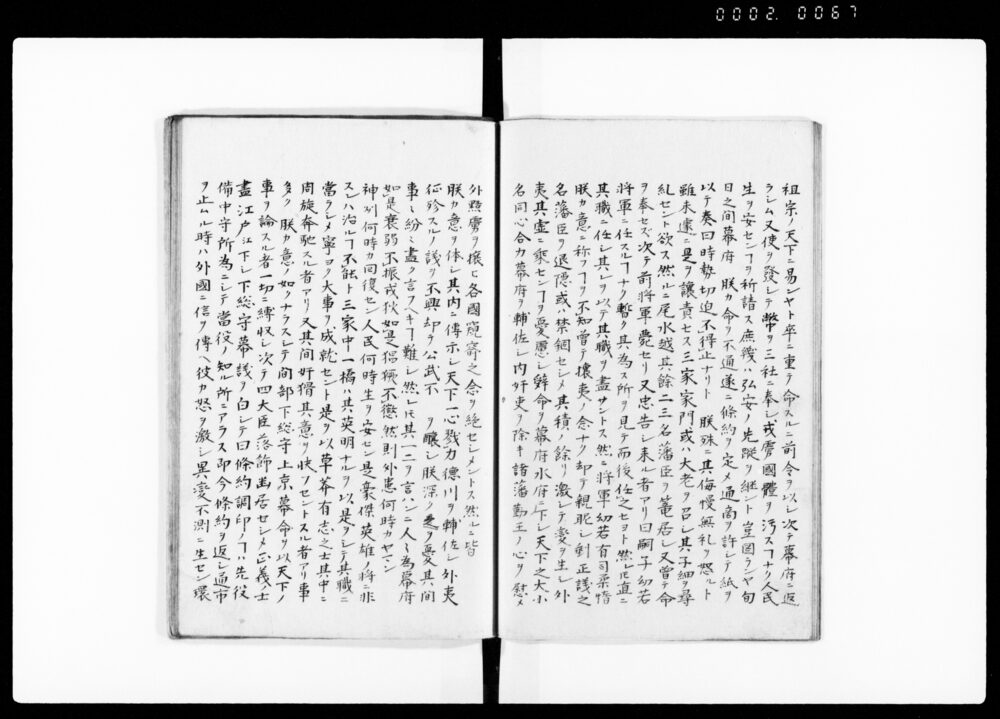 0002.0067
祖宗ノ天下ニ易シヤト卒ニ重テ命スルニ前令ヲ以レ次テ幕府ニ返
ラシム又使ヲ發レテ幣ヲ三社ニ奉シ戎虜國體ヲ汚スヿナク人民
生ヲ安センヿヲ祈請ス庶幾ハ弘安ノ先蹤ヲ継ント豈圖ランヤ旬
日之間幕府 朕カ命ヲ不通遂ニ條約ヲ定メ通商ヲ許レテ紙ヲ
以テ奏曰時勢切迫不得止ナリト 朕殊ニ其侮慢無礼ヲ怒ルト
雖未遽ニ是ヲ譲責セス三家家門或ハ大老ヲ召レ其子細ヲ尋
糺セント欲ス然ルニ尾水越其餘二三名藩臣ヲ篭居レ又曽テ命
ヲ奉セズ次テ前将軍薨セリ又忠告シ来ル者アリ曰嗣子幼若
将軍ニ任スルヿナク暫ク其為ス所ヲ見テ而後任之セヨト然レ𪜈直ニ
其職ニ任レ其レヲ以テ其職ヲ盡サントス然ニ将軍幼若有司柔惰
朕カ意ニ称フヿヲ不知曽テ攘夷ノ念ナク却テ親昵レ剰正議之
名藩臣ヲ退隠或ハ禁錮セレメ其積ノ餘リ激レテ変ヲ生レ外
夷其虚ニ乗センヿヲ憂慮レ辞命ヲ幕府水府ニ下レ天下之大小
名同心合力幕府ヲ輔佐レ内奸吏ヲ除キ諸藩勤王ノ心ヲ慰メ
外黠虜ヲ攘ヒ各國窺窬之念ヲ絶セレメントス然ルニ皆
朕カ意ヲ体レ其内ニ傳示レ天下一心戮力徳川ヲ輔佐レ外夷
征殄スルノ議ヲ不興却テ公武不 ヲ醸レ朕深ク之ヲ憂其間
事々紛々盡ク言フヘキヿ難レ然レ𪜈其一二ヲ言ハンニ人々為幕府
如是衰弱不振戎狄如是猖獗不懲然則外患何時カヤマン
神州何時カ回復セン人民何時生ヲ安セン是豪傑英雄ノ将ニ非
スンハ治ルヿ不能ト三家中一橋ハ其英明ナルヲ以是ヲレテ其職ニ
當ラレメ寧ヨク大事ヲ成就セント是ヲ以草莽有志之士其中ニ
周旋奔馳スル者アリ又其間奸猾其意ヲ快フセントスル者アリ事
多ク 朕カ意ノ如クナラスレテ間部下総守上京幕命ヲ以天下ノ
事ヲ論スル者一切ニ縛収レ次テ四大臣落飾幽居センレメ正義之士
盡江戸江下レ下総守幕議ヲ白シテ曰條約調印ノヿハ先役
備中守所為ニレテ當役ノ知ル所ニアラス即今條約ヲ返レ通市
ヲ止ムル時ハ外國ニ信ヲ傳ヘ彼カ怒ヲ激シ異変不測ニ生セン環